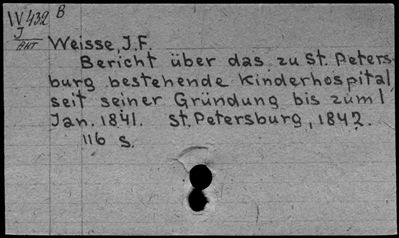 IV 432 B
I
ВКТ
Weisse, J.F.
Bericht über das zu St. Peters-
burg bestehende Kinderhospital
seit seiner Gründung bis zum 1
Jan. 1841. St. Petersburg, 1842.
116 S.